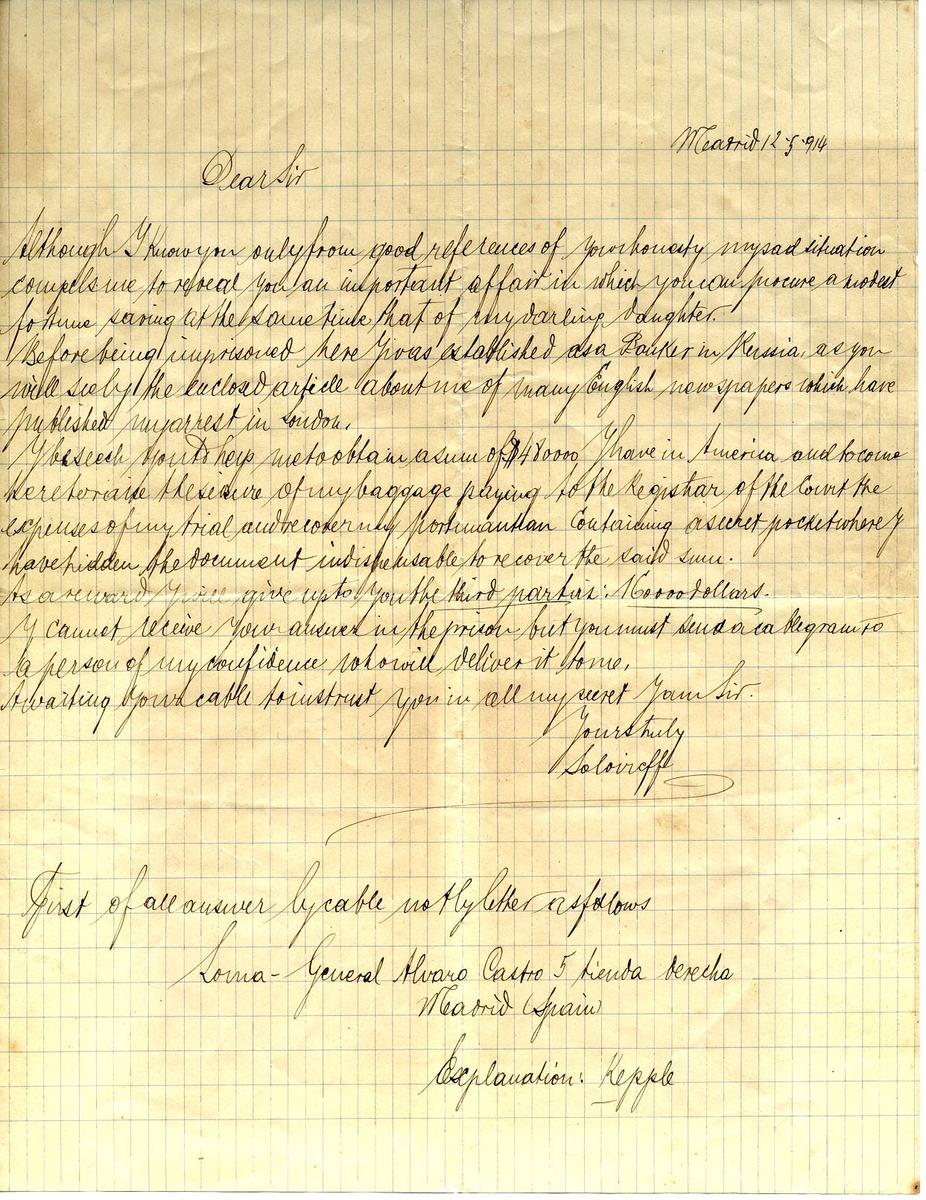 Madrid 12-5-914
Dear Sir
Although I Know you only from good references of your honesty my sad situation
compels me to reveal you an important affair in which you can procure a modest
fortune saving at the same time that of my darling daughter.
Before being imprisoned here I was established as a Banker in Russia, as you
will see by the enclosed article about me of many English newspapers which have
published my arrest in London.
I beseech you to help me to obtain a sum of $480000 I have in America and to come
here to raise the seizure of my baggage paying to the Registrar of the Court the
expenses of my trial and recover my portmantlan Containing a secret pocket where I
have hidden the document indispensable to recover the said sum.
As a reward I will give up to you the third part is: 160000 dollars.
I cannot receive your answer in the prison but you must send a cablegram to
a person of my confidence who will deliver it to me.
Awaiting your cable to instruct you in all my secret I am Sir.
Yours truly
Soloireff
First of all answer by cable not by letter as follows
Loma - General Alvaro Castro 5 tienda derecha
Madrid (Spain)
Explanation: Kepple